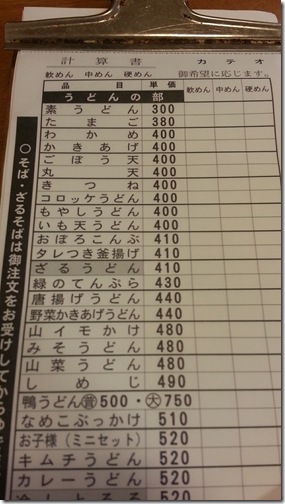 計算書 カテオ
軟めん 中めん 硬めん 御希望に応じます。
品目 単価 軟めん 中めん 硬めん
うどんの部
素うどん 300
たまご 380
わかめ 400
かきあげ 400
ごぼう天 400
丸天 400
きつね 400
コロッケうどん 400
もやしうどん 400
いも天うどん 400
おぼろこんぶ 410
タレつき釜揚げ 410
ざるうどん 410
緑のてんぷら 430
唐揚げうどん 440
野菜かきあげうどん 440
山イモかけ 480
みそうどん 480
山菜うどん 480
しめじ 490
鴨うどん㊪500・㊛750
なめこぶっかけ 510
お子様(ミニセット) 520
キムチうどん 520
カレーうどん 520
520
○そば・ざるそばは御注文をお受けしてからゆで